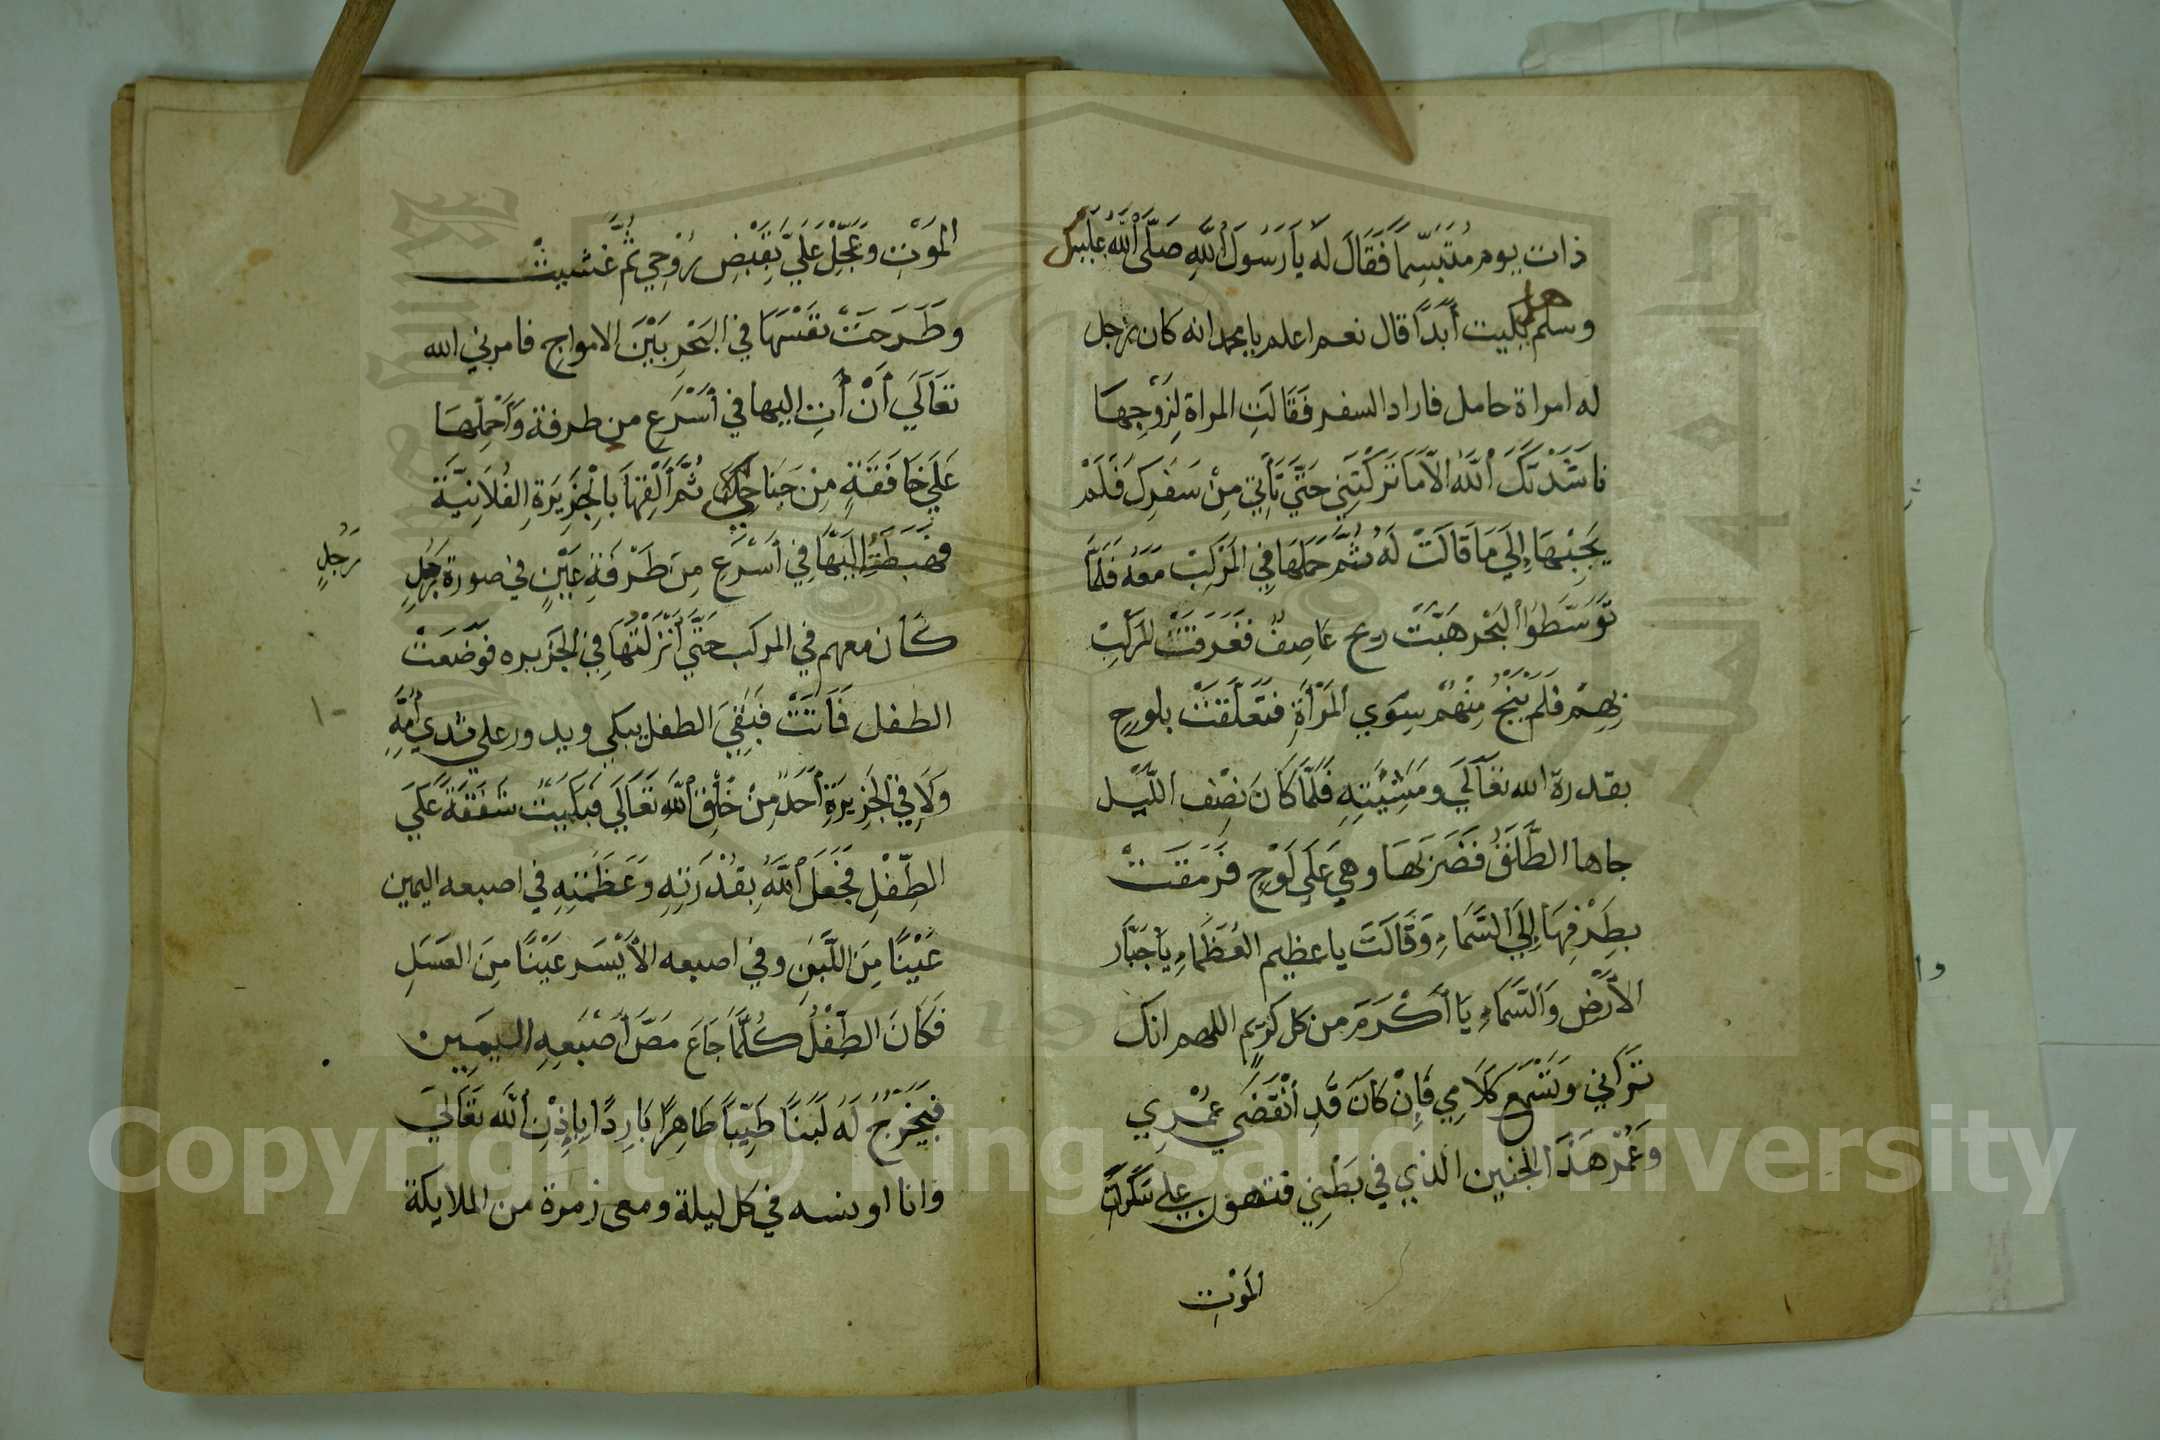 ذات يوم مُتَبَسِّماً فَقَالَ لَهُ يَا رَسُولَ اللَّهِ صَلَّى اللَّهُ عليك
وسلم هل بكيت أَبَدًا قال نعم اعلم يا محمد انه كان رجل
له امراة حامل فاراد السفر فَقَالَتِ المراة لِزَوْجِهَا
نَاشَدْتُكَ اللَّهَ الَّا مَا تَرَكْتَنِي حَتَّي تَأْتِيَ مِنْ سَفَرِكَ فَلَمْ
يَجِبْهَا إِلَي مَا قَالَتْ لَهُ ثُمَّ حَمَلَهَا فِي المَرْكِبْ مَعَهُ فَلَمَّا
تَوَسَّطُوا البَحْر هَبَّتْ ريح عَاصِفٌ فَغَرَقَتْ المَرْكِبْ
بِهِمْ فَلَمْ يَنْجُ مِنْهُمْ سِوَي المَرْأَةِ فَتَعَلَّقَتْ بلوح
بقدرة الله تَعَالَي وَمَشِيْئَتِهِ فَلَمَّا كَانَ نِصْف اللَّيْل
جاها الطَّلَقُ فَضَرَبَهَا وَهِيَ عَلَي لَوْحٍ فَرَمَقَتْ
بِطَرْفِهَا إِلَي السَّمَاءِ وَقَالَتَ يا عظيم العُظَمَاءِ يَا جَبَّار
الأَرْضِ وَالسَّمَاءِ يَا أَكْرَمَ من كل كَرِيمٍ اللهم انك
تَرَاني وَتَسْمَع كَلَامِي فَإِنْ كَانَ قَدِ انْقَضَي عُمْرِي
وَعُمْر هَذَا الجنين الذي في بَطْنِي فتهون علي سَكَرَاتَ
المَوْتِ
المَوْتِ وَعَجِّلْ عَلَيَّ بِقَبْضِ رُوْحِي ثُمَّ غَشيت
وطَرَحَتْ نَفْسَهَا في البَحْرِ بَيْنَ الامواج فامرني الله
تَعَالَي أَنْ أَتِ اليها في أَسْرَعِ من طرفة وَأَحْمِلْهَا
عَلَي خَافَقَةٍ مِنْ جَنَاحِي ثُمَّ أَلْقِهَا بِالْجَزِيَرَةِ الفُلَانِيَّةَ
فهَبَطَتُ إِلَيْهَا فِي أَسْرَعِ مِنْ طَرْفَةِ عَيْنٍ في صورة رَجُلٍ
رَجُلٍ
كَان معهم في المركب حَتَّي أَنْزَلْتُهَا فِي الجَزيره فَوَضَعَتْ
الطفل فَمَاتَتْ فَبَقِيَ الطفل يبكي ويدور علي ثدي أُمِّهِ
وَلَا فِي الجَزِيرَةِ أَحَدٌ مِنْ خَلْقِ اللَّهِ تَعَالَي فَبَكَيْتُ شَفَقَةً عَلَيَ
الطِّفْلِ فَجَعَلَ اللَّهُ بِقُدْرَتِهِ وَعَظَمَتِهِ في اصبعه اليمين
عَيْنًا مِنَ اللَّبَنِ وفي اصبعه الأَيْسَر عَيْنًا مِنَ العَسَلِ
فَكَانَ الطِّفْلُ كُلَّمَا جَاعَ مَصَّ أَصْبَعِهِ اليَمِين
فَيَخْرُجُ لَهُ لَبَنًا طَيِّبًا طَاهِرًا بَارِدًا بِإِذْنِ اللَّه تَعَالَيَ
وانا اونسه في كل ليلة ومعي زمرة من الملايكة
Copyright © King Saud University